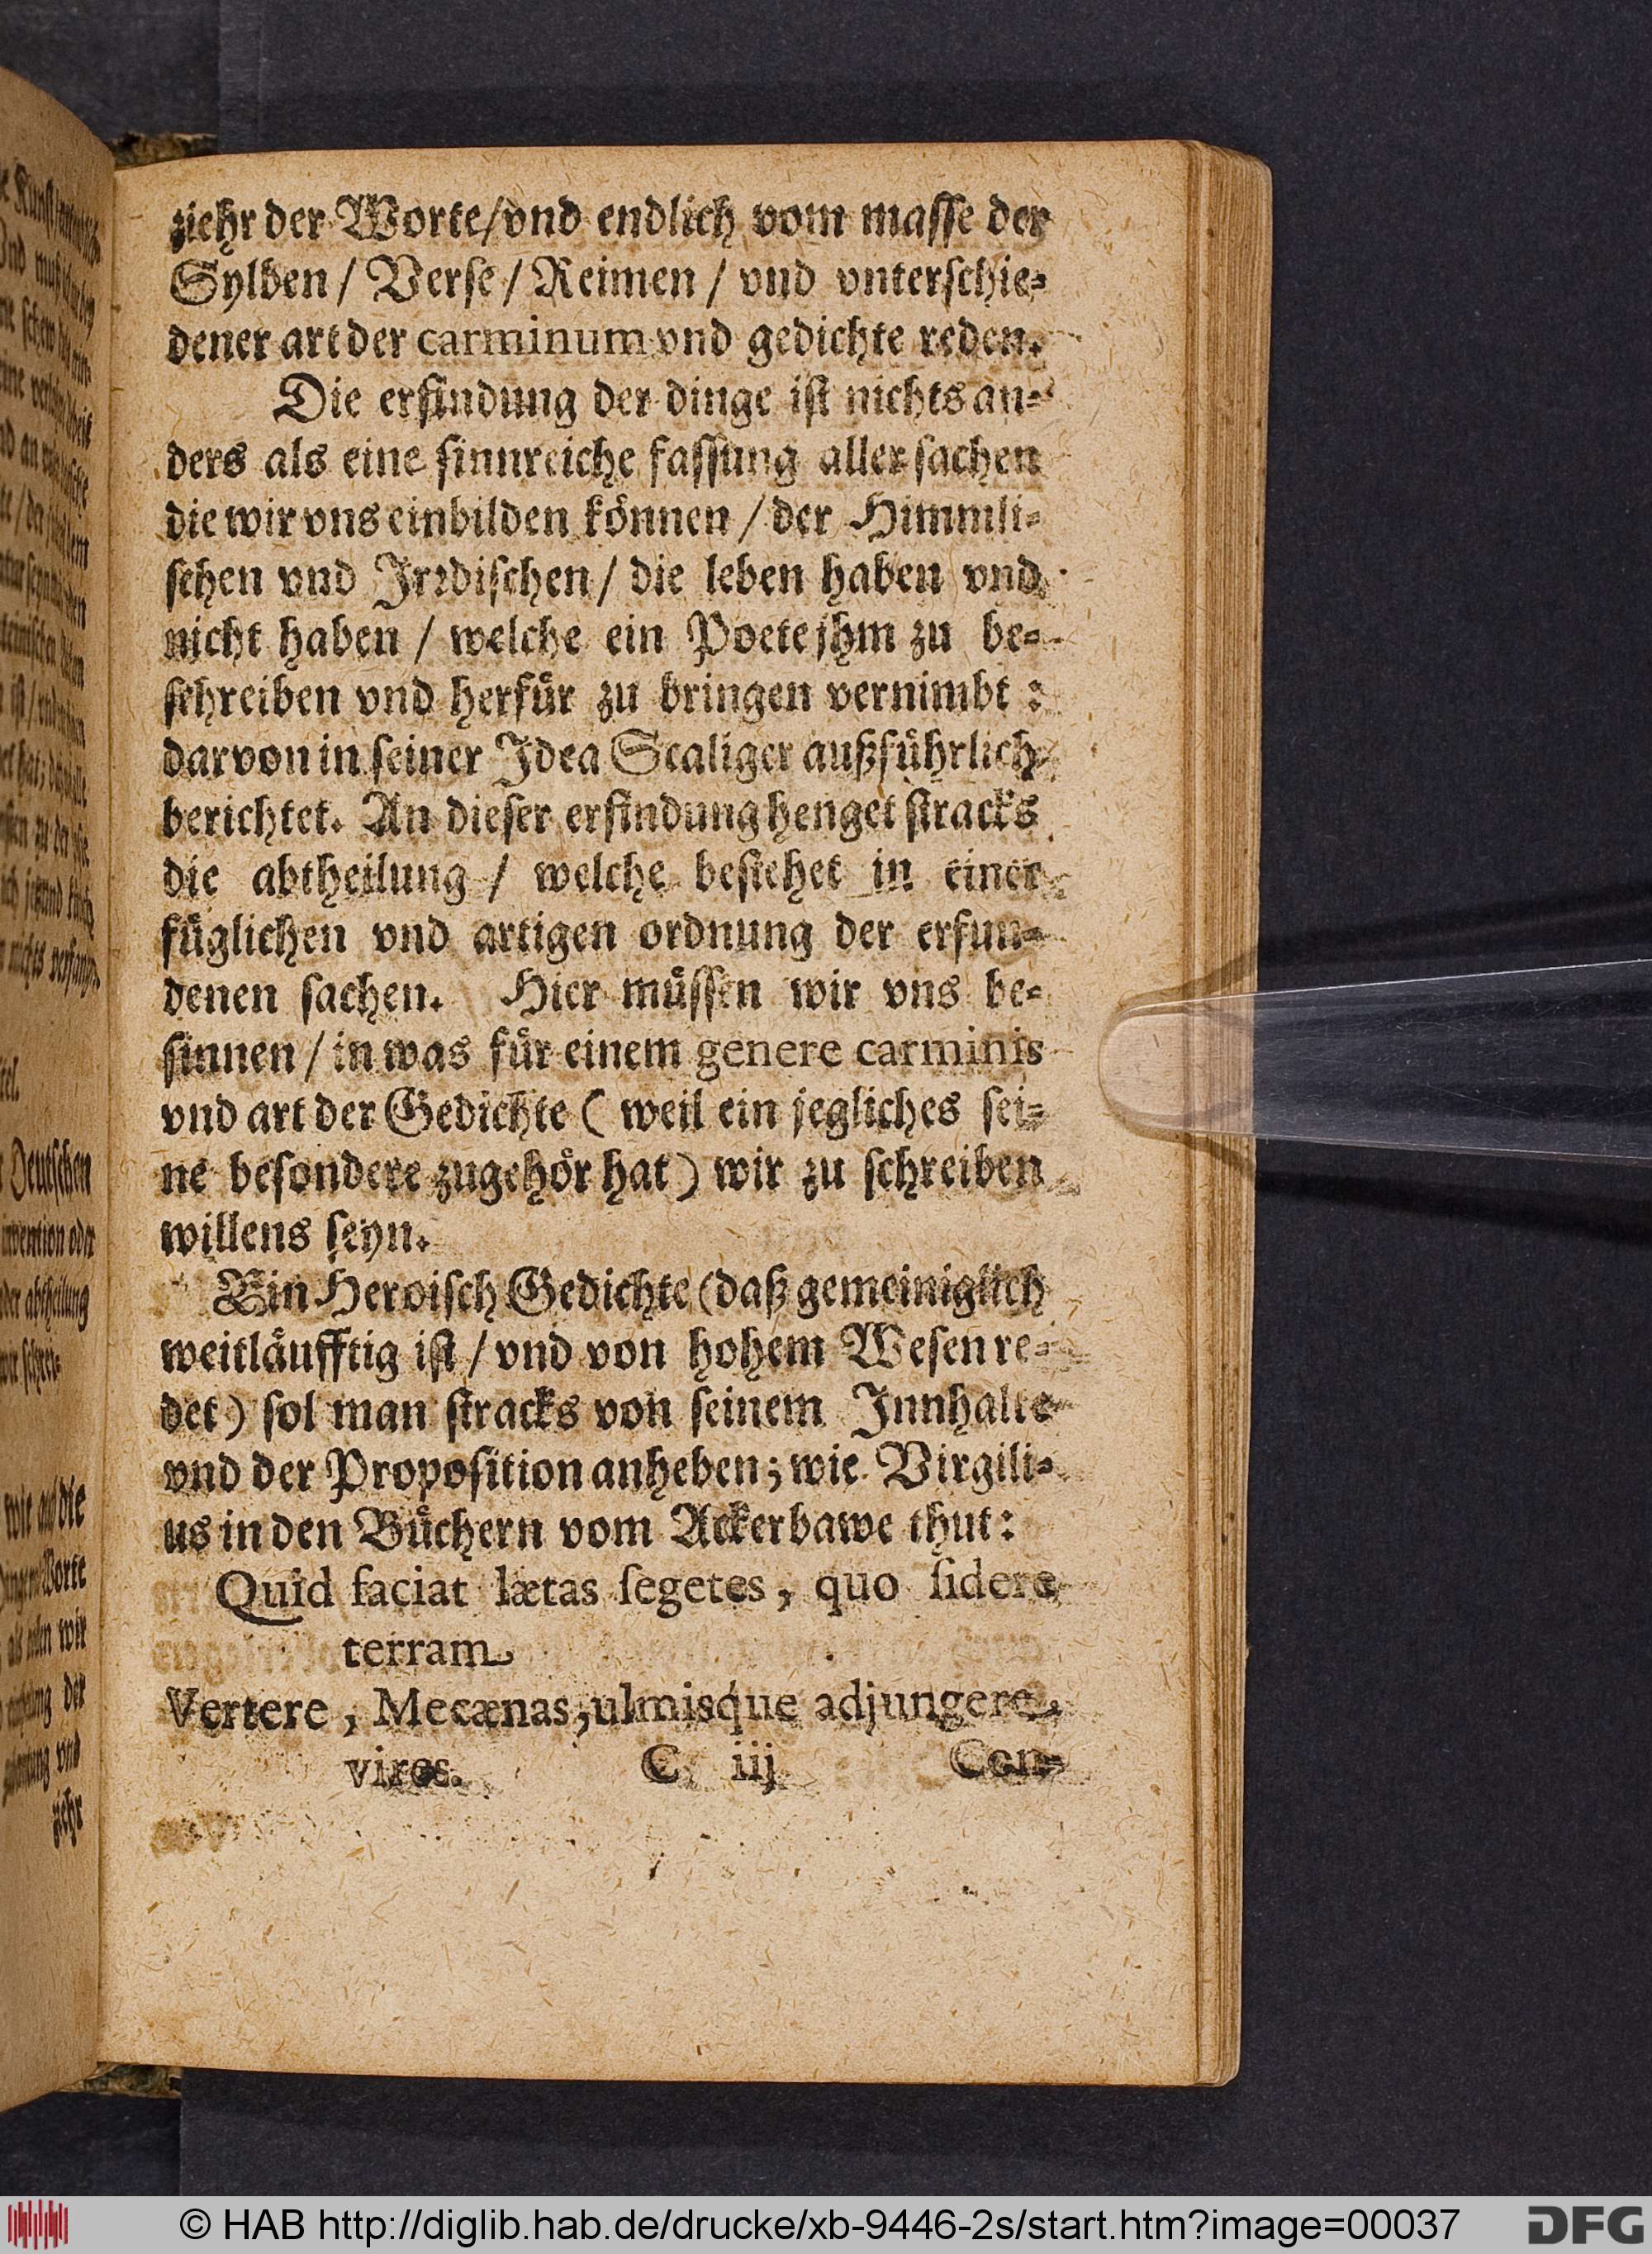 ziehr der Worte/vnd endlich vom maſſe der
Sylben / Verſe / Reimen / vnd vnterſchie⸗
dener art der carminum vnd gedichte reden.
Die erfindung der dinge iſt nichts an⸗
ders als eine ſinnreiche faſſung aller ſachen
die wir vns einbilden können / der Himmli⸗
ſchen vnd Jrꝛdiſchen / die leben haben vnd
nicht haben / welche ein Poete jhm zu be⸗
ſchreiben vnd herfuͤr zu bringen vernimbt :
darvon in ſeiner Jdea Scaliger außfuͤhrlich
berichtet. An dieſer erfindung henget ſtracks
die abtheilung / welche beſtehet in einer
fuͤglichen vnd artigen ordnung der erfun⸗
denen ſachen. Hier muͤſſen wir vns be⸗
ſinnen / in was fuͤr einem genere carminis
vnd art der Gedichte ( weil ein jegliches ſei⸗
ne beſondere zugehoͤr hat) wir zu ſchreiben
willens ſeyn.
Ein Heroiſch Gedichte (daß gemeiniglich
weitlaͤufftig iſt / vnd von hohem Weſen re⸗
det) ſol man ſtracks von ſeinem Jnnhalte
vnd der Propoſition anheben; wie Virgili⸗
us in den Buͤchern vom Ackerbawe thut:
Quid faciat lætas ſegetes, quo ſidere
terram
Vertere, Mecænas, ulmisque adjungere
vires. C iij Con⸗
Deutſchen
invention oder
der abtheilung
wie auß die
Worte
wir
der
vnd
ziehr
© HAB http://diglib.hab.de/drucke/xb-9446-2s/start.htm?image=00037
DFG